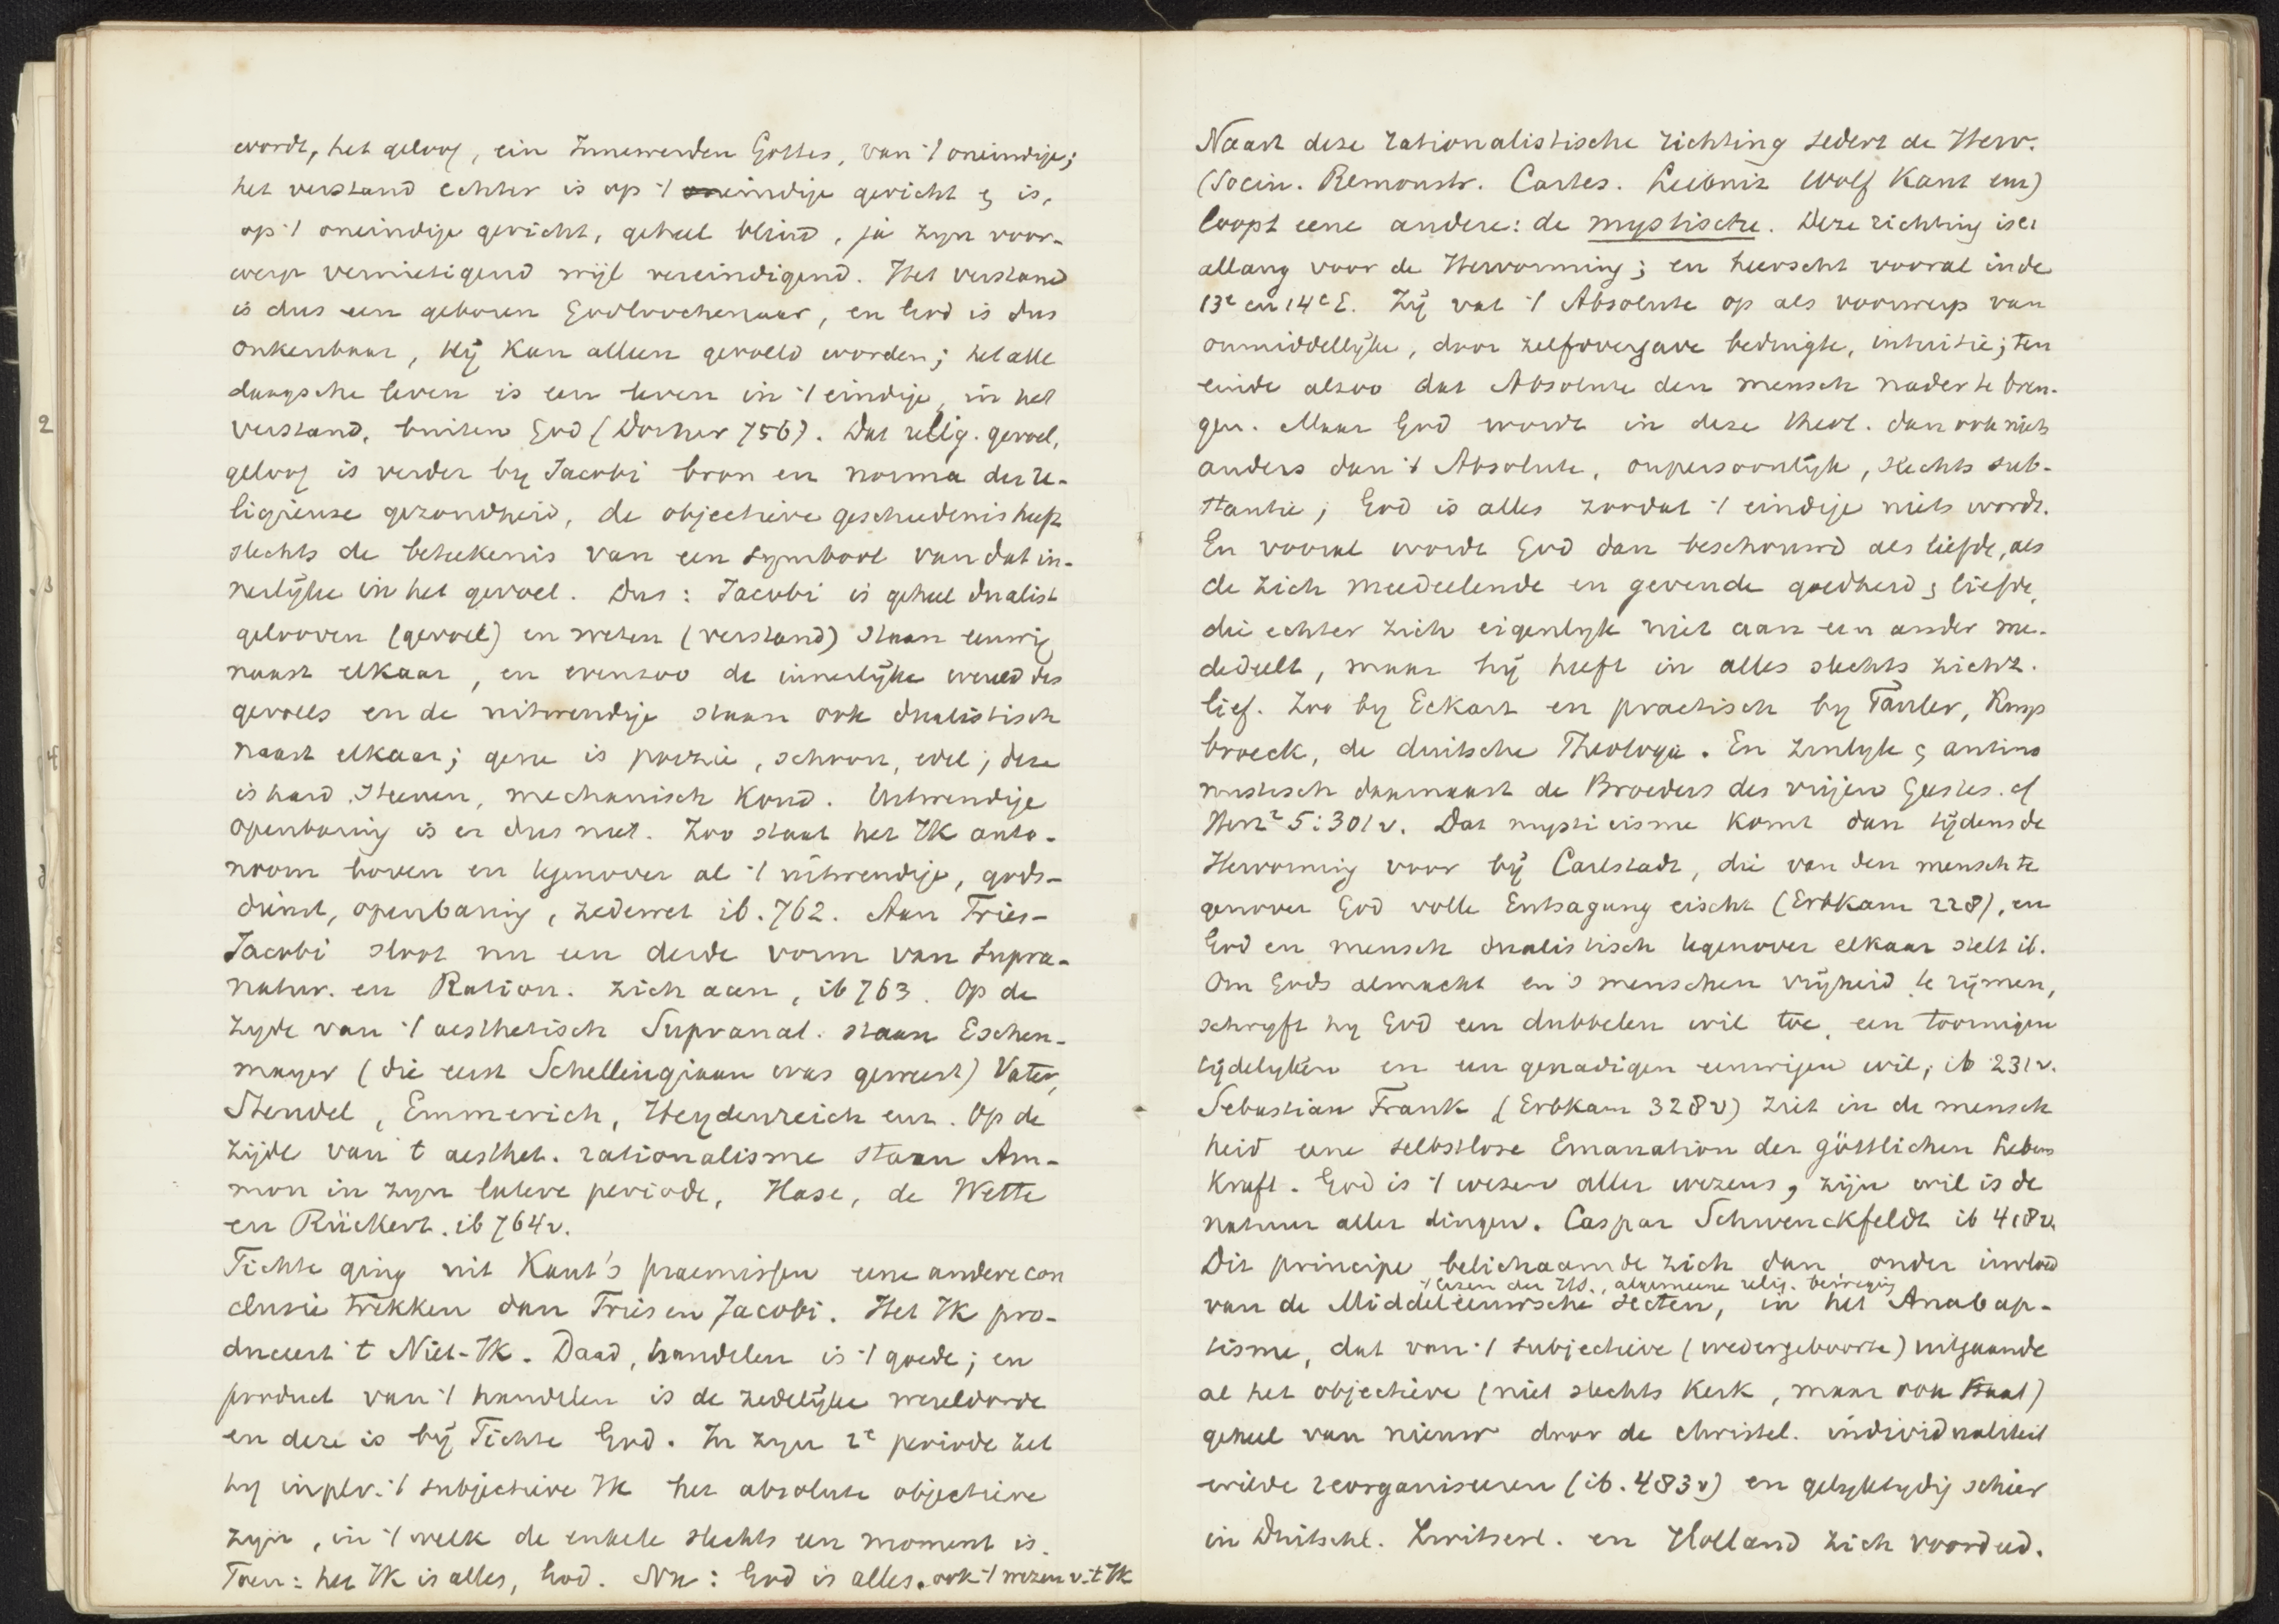 wordt, het geloof, ein Innewerden Gottes, van 't oneindige;
het verstand echter is op 't eindige gericht & is,
op 't oneindige gericht, geheel blind, ja zyn voor-
werp vernietigend wijl vereindigend. Het verstand
is dus een geboren Godloochenaar, en God is dus
onkenbaar, Hij kan alleen gevoeld worden; het alle
daagsche leven is een leven in 't eindige, in het
verstand, buiten God (Dorner 756). Dat relig. gevoel,
geloof is verder by Jacobi bron en norma der re-
ligieuse gezondheid, de objectieve geschiedenis heeft
slechts de beteekenis van een symbool van dat in-
nerlijke in het gevoel. Dus: Jacobi is geheel dualist
gelooven (gevoel) en weten (verstand) staan eeuwig
naast elkaar, en evenzoo de innerlijke wereld des
gevoels en de uitwendige staan ook dualistisch
naast elkaar; gene is poëzie, schoon, edel; deze
is hard, steenen, mechanisch koud. Uitwendige
openbaring is er dus niet. Zoo staat het Ik auto-
noom boven en tegenover al 't uitwendige, gods-
dienst, openbaring, zedewet ib. 762. Aan Fries-
Jacobi sloot nu een derde vorm van Supra-
natur. en Ration. zich aan, ib 763. Op de
zyde van 't aesthetisch Supranat. staan Eschen-
mayer (die eerst Schellingiaan was geweest) Vater,
Steudel, Emmerich, Heydenreich enz. Op de
zijde van 't aesthet. rationalisme staan Am-
mon in zyn latere periode, Hase, de Wette
en Rückert. ib 764v.
Fichte ging uit Kant's praemissen eene andere con
clusie trekken dan Fries en Jacobi. Het Ik pro-
duceert 't Niet-Ik. Daad, handelen is 't goede; en
product van 't handelen is de zedelijke wereldorde
en deze is bij Fichte God. In zyn 2e periode zet
hy in plv. 't subjectieve Ik het absolute objectieve
zyn, in 't welk de enkele slechts een moment is.
Toen: het Ik is alles, God. Nu: God is alles. ook 't wezen v. 't Ik
Naast deze rationalistische richting sedert de Herv.
(Socin. Remonstr. Cartes. Leibniz Wolf Kant enz)
loopt eene andere: de mystische. Deze richting is er
allang voor de Hervorming; en heerscht vooral in de
13e en 14e E. Zij vat 't Absolute op als voorwerp van
onmiddellijke, door zelfovergave bedingte, intuitie; ten
einde alzoo dat Absolute den mensch nader te bren-
gen. Maar God wordt in deze theol. dan ook niets
anders dan 't Absolute, onpersoonlijk, slechts sub-
stantie; God is alles zoodat 't eindige niets wordt.
En vooral wordt God dan beschouwd als liefde, als
de zich meedeelende en gevende goedheid & liefde,
die echter zich eigenlyk niet aan een ander me-
dedeelt, maar hij heeft in alles slechts zichz.
lief. Zoo by Eckart en practisch by Tauler, Ruys
broeck, de duitsche Theologie. En zinlyk & antino
mistisch daarnaast de Broeders des vrijen Geestes. cf
Herz² 5:301v. Dat mysticisme komt dan tijdens de
Hervorming voor bij Carlstadt, die van den mensch te
genover God volle Entsagung eischt (Erbkam 228), en
God en mensch dualistisch tegenover elkaar stelt ib.
Om Gods almacht en 's menschen vrijheid te rijmen,
schryft hy God een dubbelen wil toe, een toornigen
tijdelyken en een genadigen eeuwigen wil, ib 231v.
Sebastian Frank (Erbkam 328v) ziet in de mensch
heid eene selbstlose Emanation der göttlichen Lebens
kraft. God is 't wezen aller wezens, zijn wil is de
natuur aller dingen. Caspar Schwenckfeldt ib 418v.
Dit principe belichaamde zich dan onder invloed
't lezen der HS., algemeene relig. beweging
van de Middeleeuwsche secten, in het Anabap-
tisme, dat van 't subjectieve (wedergeboorte) uitgaande
al het objectieve (niet slechts Kerk, maar ook Staat)
geheel van nieuw door de christel. individualiteit
wilde reorganiseeren (ib. 483v) en gelyktydig schier
in Duitschl. Zwitserl. en Holland zich voordeed.
2
3
4